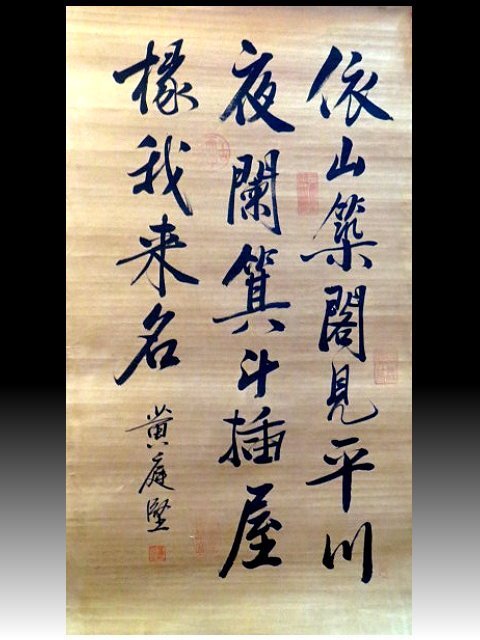 依山築閣見平川
夜闌箕斗插屋
椽我来名
黄庭堅